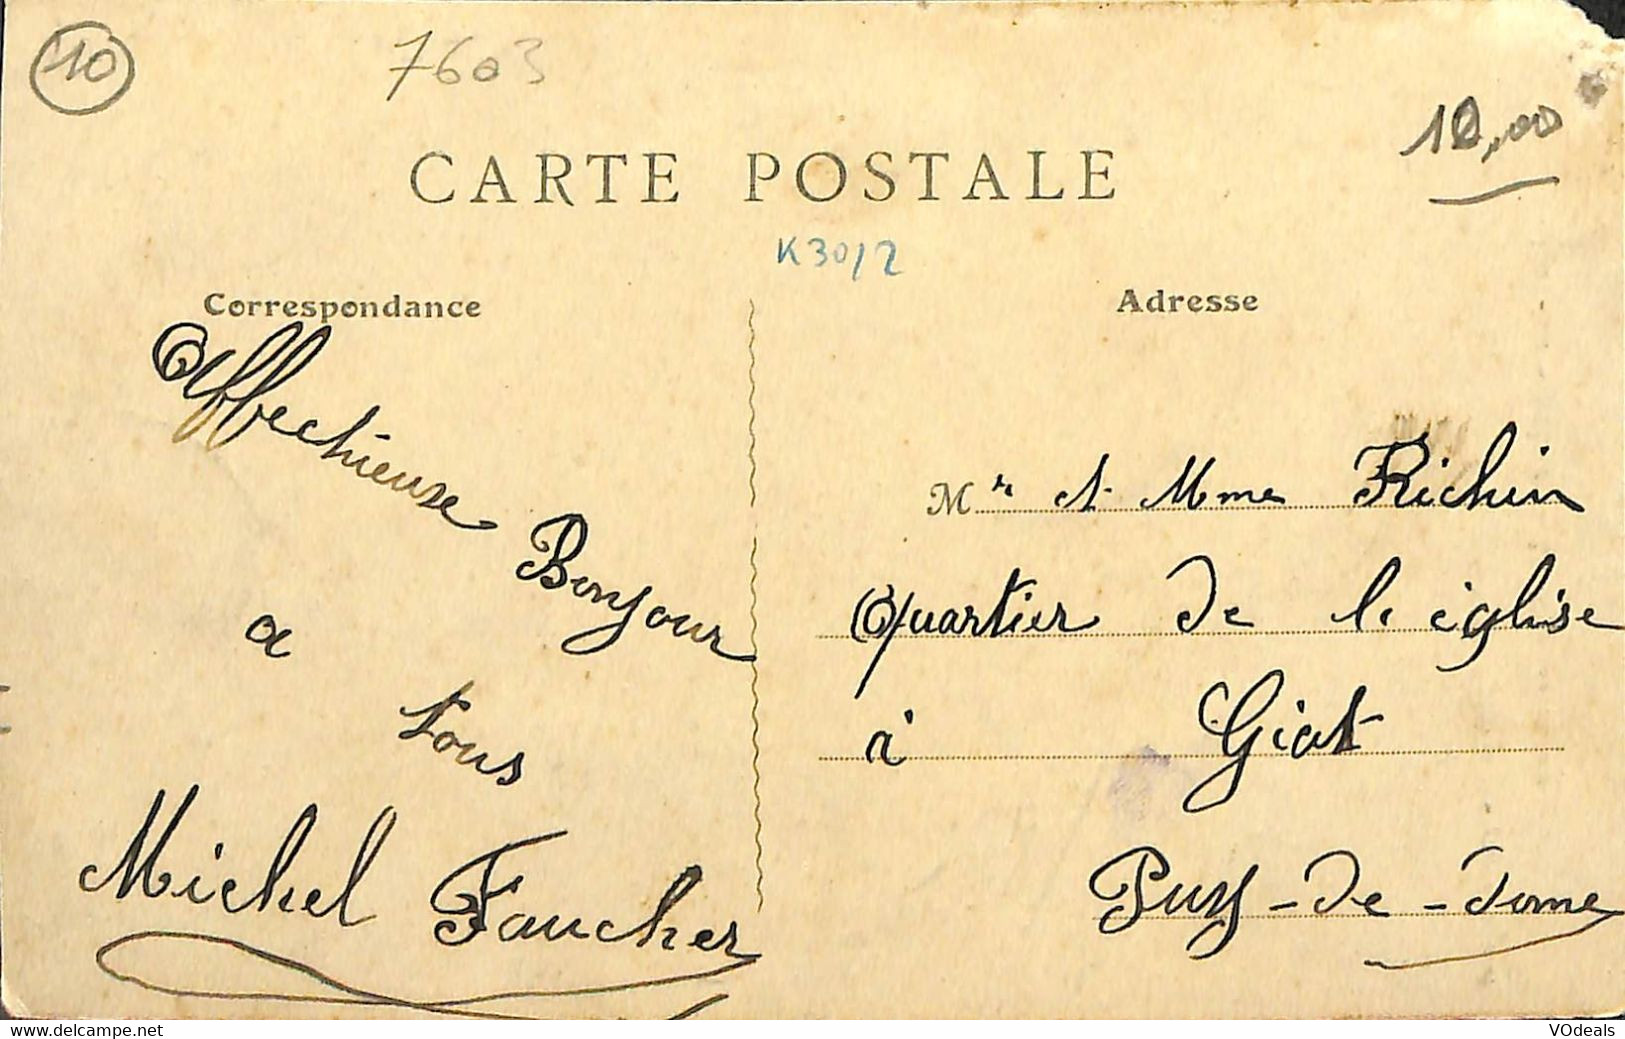 10
7603
10,00
CARTE POSTALE
K30/2
Correspondance
Affectieuse Bonjour
a
tous
Michel Faucher
Adresse
Mr et Mme Richin
Quartier de le église
à Giat
Puy-de-dome
www.delcampe.net
VOdeals